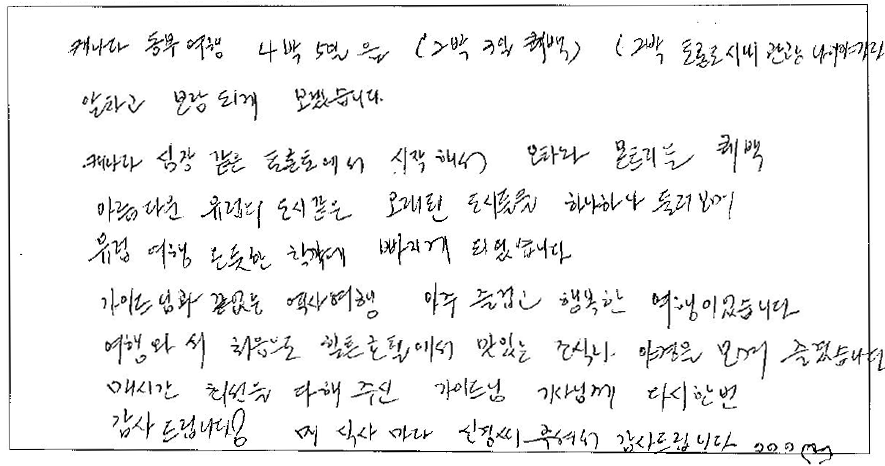 캐나다 동부여행 4박 5일을 (2박 3일 퀘백) (2박 토론토시내 관광 나이아가라)
알차고 보람되게 보냈습니다.
캐나다 심장 같은 토론토에서 시작해서 오타와 몬트리올 퀘백
아름다운 유럽의 도시같은 오래된 도시들을 하나하나 둘러보며
유럽 여행 온듯한 착각에 빠지게 되었습니다.
가이드님과 끝없는 역사여행 아주 즐겁고 행복한 여행이었습니다
여행와서 처음으로 힐튼호텔에서 맛있는 조식과 야경을 즐겼습니다
매시간 최선을 다해 주신 가이드님 기사님께 다시한번
감사드립니다. 매 식사 마다 신경써 주셔서 감사드립니다